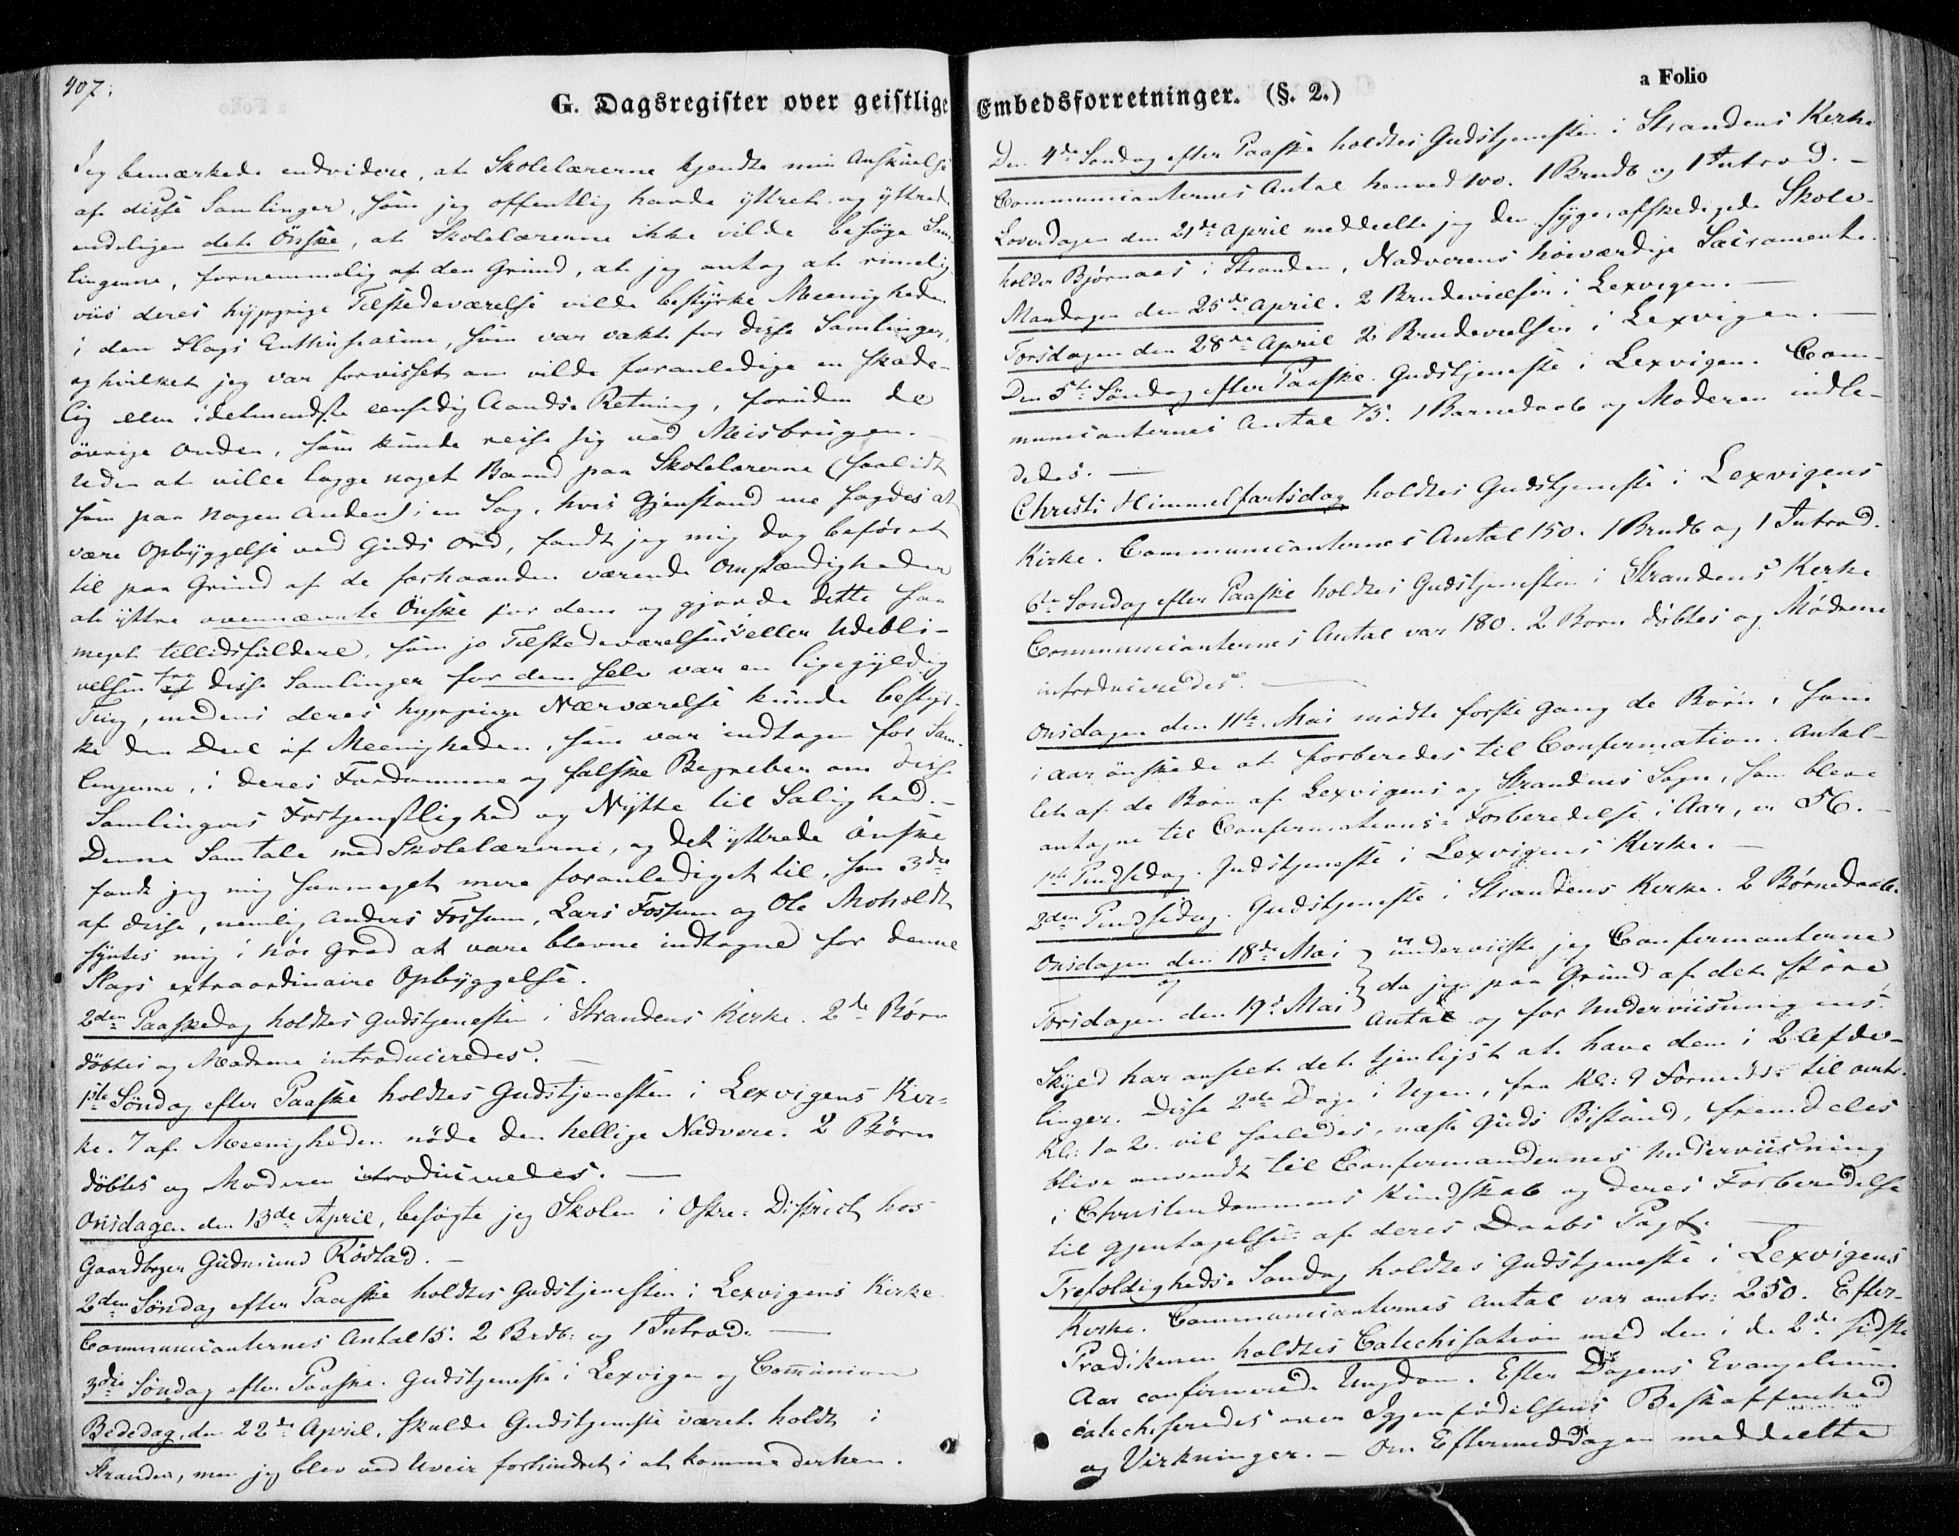 407.
G. Dagsregister over geistlige
Jeg bemærkede endvidere, at Skolelærerne kjendte min Anskuelse
af disse Samlinger, som jeg offentlig havde yttret og yttrede
endeligen det Önske, at Skolelærerne ikke vilde besöge Sam-
lingerne, fornemmelig af den Grund, at jeg antog at rimelig-
viis deres hyppige Tilstedeværelse vilde bestyrke Meenigheden
i den Slags Enthusiasme, som var vakt for disse Samlinger,
og hvilket jeg var forvisset om vilde foranledige en skade-
lig eller idetmindste eensidig Aands-Retning, foruden de
övrige Onder, som kunde reise sig ved Misbrugen. —
Uden at ville lægge noget Baand paa Skolelærerne (saalidt
som paa Nogen Anden) i en Sag, hvis Gjenstand me sagdes at
være Opbyggelse ved Guds Ord, fandt jeg mig dog beföiet
til paa Grund af de forhaanden værende Omstændigheder
at yttre ovennævnte Önske for dem og gjorde dette saa
meget tillidsfuldere, som jo Tilstedeværelsen i eller Udebli-
velsen fra disse Samlinger for dem selv var en ligegyldig
Ting, medens deres hyppige Nærværelse kunde bestyr-
ke den Deel af Meenigheden, som var indtagen for Sam-
lingerne, i deres Fordomme og falske Begreber om disse
Samlingers Fortjenstlighed og Nytte til Salighed. —
Denne Samtale med Skolelærerne, og det yttrede Önske
fandt jeg mig saameget mere foranlediget til, som 3de
af disse, nemlig Anders Fossum, Lars Fossum og Ole Moholdt
syntes mig i höi Grad at være blevne indtagne for denne
Slags extraordinaire Opbyggelse.
2den Paaskedag holdtes Gudstjenesten i Strandens Kirke. 2de Börn
döbtes og Mödrene introduceredes. —
1ste Söndag efter Paaske holdtes Gudstjenesten i Lexvigens Kir-
ke. 7 af Meenigheden nöde den hellige Nadvere. 2 Börn
döbtes og Moderen introduceredes. —
Onsdagen den 13de April, besögte jeg Skolen i Ostre-District hos
Gaardbruger Gudmund Röstad. —
2den Söndag efter Paaske holdtes Gudstjenesten i Lexvigens Kirke
Communicanternes Antal 15. 2 Brdb: og 1 Introd. —
3die Söndag efter Paaske. Gudstjeneste i Lexvigen og Communion
Bededag den 22de April, skulde Gudstjeneste været holdt i
Stranden, men jeg blev ved Uveir forhindret i at komme derhen.
a Folio
Embedsforretninger. (§. 2.)
Den 4de Söndag efter Paaske holdtes Gudstjenesten i Strandens Kirke
Communicanternes Antal henved 100. 1 Brudb og 1 Introd. —
Loverdagen den 21de April meddeelte jeg den syge, afskedigede Skole-
holder Bjørnaas i Stranden, Nadverens höiværdige Sacramente.
Mandagen den 25de April. 2 Brudevielser i Lexvigen. —
Torsdagen den 28de April 2 Brudevielser i Lexvigen. —
Den 5te Söndag efter Paaske. Gudstjeneste i Lexvigen. Com-
municanternes Antal 75. 1 Barnedaab og Moderen indle-
dedes. —
Christi Himmelfartsdag holdtes Gudstjeneste i Lexvigens
Kirke. Communicanternes Antal 150. 1 Brudb og 1 Introd.
6te Söndag efter Paaske holdtes Gudstjenesten i Strandens Kirke
Communicanternes Antal var 180. 2 Born döbtes og Mödrene
introduceredes. —
Onsdagen den 11te Mai mödte förste Gang de Börn, som
i Aar önskede at forberedes til Confirmation. Antal-
let af de Börn af Lexvigens og Strandens Sogn, som bleve
antagne til Confirmations-Forberedelse i Aar, er 56. —
1ste Pindsedag. Gudstjeneste i Lexvigens Kirke. —
2den Pindsedag. Gudstjeneste i Strandens Kirke. 2 Börnedaabe
Onsdagen den 18de Mai } underviiste jeg Confirmanterne
og } da jeg paa Grund af det större
Torsdagen den 19de Mai } Antal og for Underviisningens
Skyld har anseet det tjenligst at have dem i 2 Afde-
linger. Disse 2de Dage i Ugen, fra Kl: 9 Formid: til omtr.
Kl: 1 a 2. vil saaledes, næst Guds Bistand, fremdeles
blive anvendt til Confirmandernes Underviisning
i Christendommens Kundskab og deres Forberedelse
til Gjentagelsen af deres Daabs Pagt. —
Trefoldigheds-Söndag holdtes Gudstjeneste i Lexvigens
Kirke. Communicanternes Antal var omtr: 250. Efter-
Prædikenen holdtes Catechisation med den i de 2de sidste
Aar confirmerede Ungdom. Efter Dagens Evangelium
catechiseredes over Igjenfödelsens Beskaffenhed
og Virkninger. — Om Eftermiddagen meddeelte